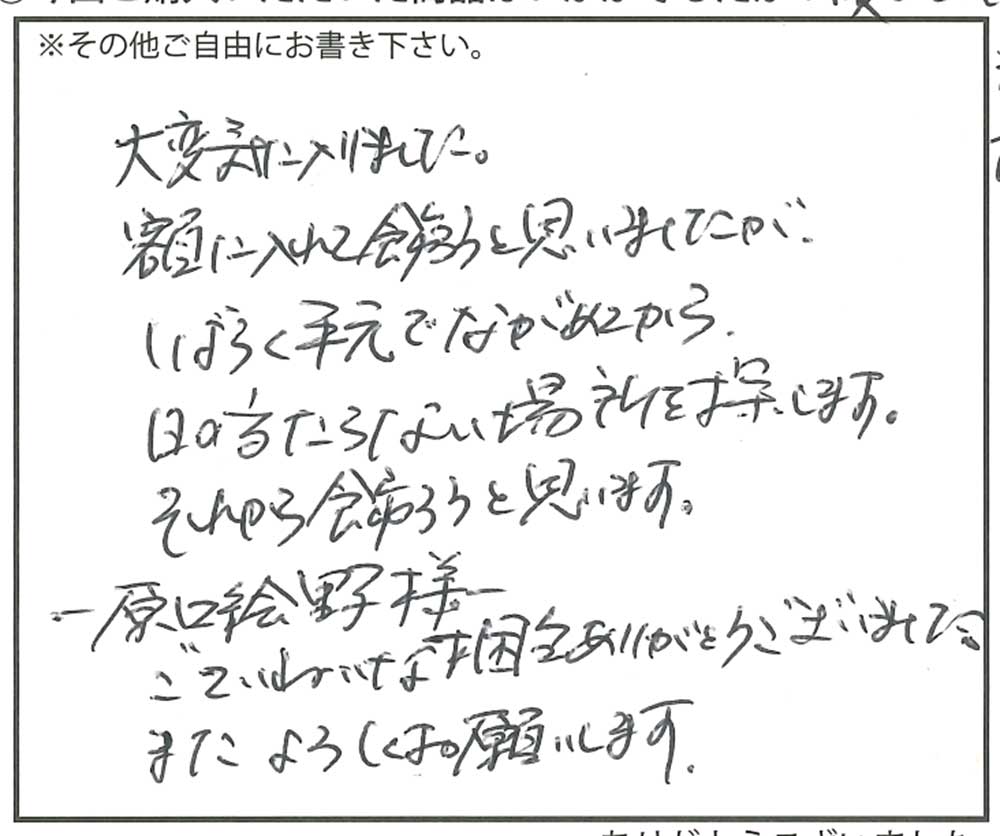 ※その他ご自由にお書き下さい。
大変気に入りました。
額に入れて飾ろうと思いましたが、
しばらく手元でながめてから、
日の当たらない場所を探します。
それから飾ろうと思います。
ー原口絵野様ー
ごていねいな梱包ありがとうございました。
またよろしくお願いします。